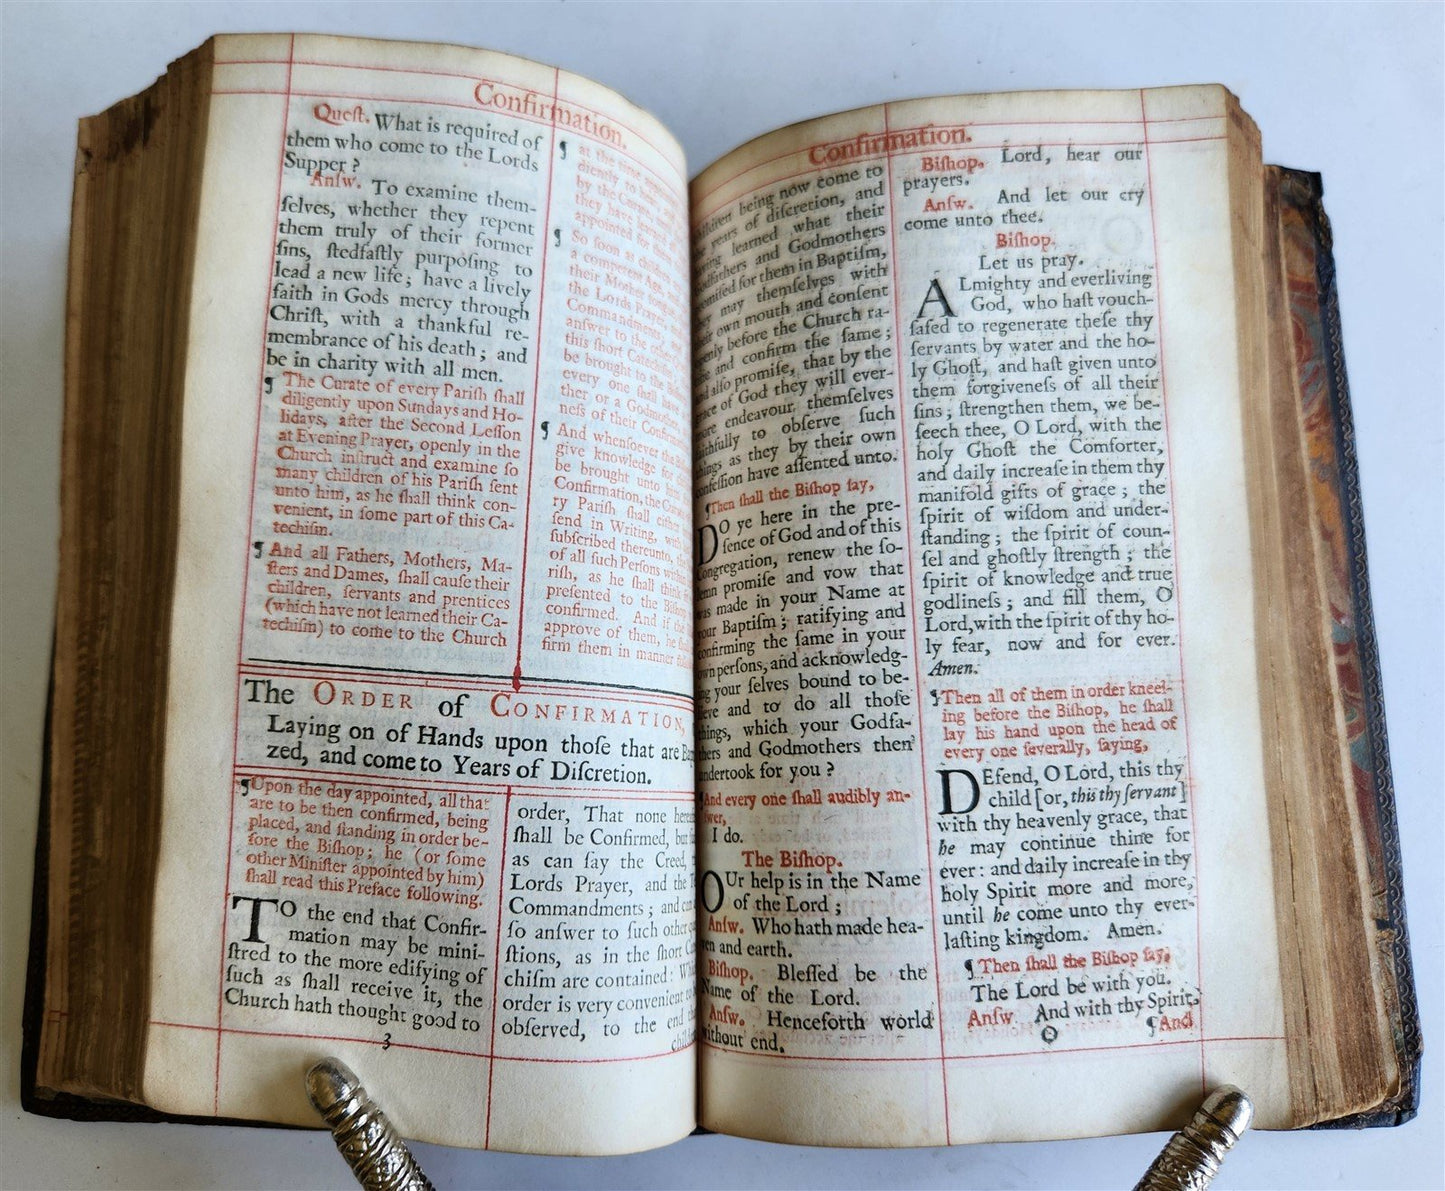 Confirmation.
Queſt. What is required of
them who come to the Lords
Supper?
Anſw. To examine them-
ſelves, whether they repent
them truly of their former
ſins, ſtedfaſtly purpoſing to
lead a new life; have a lively
faith in Gods mercy through
Chriſt, with a thankful re-
membrance of his death; and
be in charity with all men.
¶ The Curate of every Pariſh ſhall
diligently upon Sundays and Ho-
lidays, after the Second Leſſon
at Evening Prayer, openly in the
Church inſtruct and examine ſo
many children of his Pariſh ſent
unto him, as he ſhall think con-
venient, in ſome part of this Ca-
techiſm.
¶ And all Fathers, Mothers, Ma-
ſters and Dames, ſhall cauſe their
children, ſervants and prentices
(which have not learned their Ca-
techiſm) to come to the Church
¶ at the time
diently to
by the Curate,
they have learned
appointed for them
¶ So ſoon as children
a competent Age, and
their Mother tongue,
the Lords Prayer,
Commandments, and
anſwer to the other
this ſhort Catechiſm,
be brought to the
every one ſhall have a
ther or a Godmother,
neſs of their Confirmation.
¶ And whenſoever the
give knowledge for
be brought unto him
Confirmation, the Curate
ry Pariſh ſhall either
ſend in Writing, with
ſubſcribed thereunto, the
of all ſuch Perſons within
riſh, as he ſhall think
preſented to the Biſhop
confirmed. And if the
approve of them, he ſhall
firm them in manner
The ORDER of CONFIRMATION,
Laying on of Hands upon thoſe that are Bapti-
zed, and come to Years of Diſcretion.
¶ Upon the day appointed, all that
are to be then confirmed, being
placed, and ſtanding in order be-
fore the Biſhop; he (or ſome
other Miniſter appointed by him)
ſhall read this Preface following.
TO the end that Confir-
mation may be mini-
ſtred to the more edifying of
ſuch as ſhall receive it, the
Church hath thought good to
order, That none
ſhall be Confirmed, but
as can ſay the Creed,
Lords Prayer, and the
Commandments; and can
ſo anſwer to ſuch other
ſtions, as in the ſhort
chiſm are contained:
order is very convenient to
obſerved, to the end
3
Confirmation.
children being now come to
the years of diſcretion, and
having learned what their
Godfathers and Godmothers
promiſed for them in Baptiſm,
they may themſelves with
their own mouth and conſent
openly before the Church ra-
tifie and confirm the ſame;
and alſo promiſe, that by the
grace of God they will ever-
more endeavour themſelves
faithfully to obſerve ſuch
things as they by their own
confeſſion have aſſented unto.
¶ Then ſhall the Biſhop ſay,
DO ye here in the pre-
ſence of God and of this
Congregation, renew the ſo-
lemn promiſe and vow that
was made in your Name at
your Baptiſm; ratifying and
confirming the ſame in your
own perſons, and acknowledg-
ing your ſelves bound to be-
lieve and to do all thoſe
things, which your Godfa-
thers and Godmothers then
undertook for you?
¶ And every one ſhall audibly an-
ſwer,
I do.
The Biſhop.
OUr help is in the Name
of the Lord;
Anſw. Who hath made hea-
ven and earth.
Biſhop. Bleſſed be the
Name of the Lord.
Anſw. Henceforth world
without end.
Biſhop. Lord, hear our
prayers.
Anſw. And let our cry
come unto thee.
Biſhop.
Let us pray.
ALmighty and everliving
God, who haſt vouch-
ſafed to regenerate theſe thy
ſervants by water and the ho-
ly Ghoſt, and haſt given unto
them forgiveneſs of all their
ſins; ſtrengthen them, we be-
ſeech thee, O Lord, with the
holy Ghoſt the Comforter,
and daily increaſe in them thy
manifold gifts of grace; the
ſpirit of wiſdom and under-
ſtanding; the ſpirit of coun-
ſel and ghoſtly ſtrength; the
ſpirit of knowledge and true
godlineſs; and fill them, O
Lord, with the ſpirit of thy ho-
ly fear, now and for ever.
Amen.
¶ Then all of them in order kneel-
ing before the Biſhop, he ſhall
lay his hand upon the head of
every one ſeverally, ſaying,
DEfend, O Lord, this thy
child [or, this thy ſervant]
with thy heavenly grace, that
he may continue thine for
ever: and daily increaſe in thy
holy Spirit more and more,
until he come unto thy ever-
laſting kingdom. Amen.
¶ Then ſhall the Biſhop ſay,
The Lord be with you.
Anſw. And with thy Spirit.
¶ And